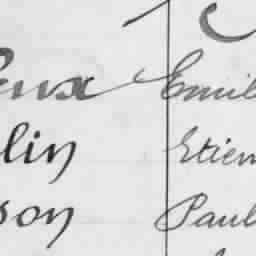 eux Emil
lin Etien
son Paul